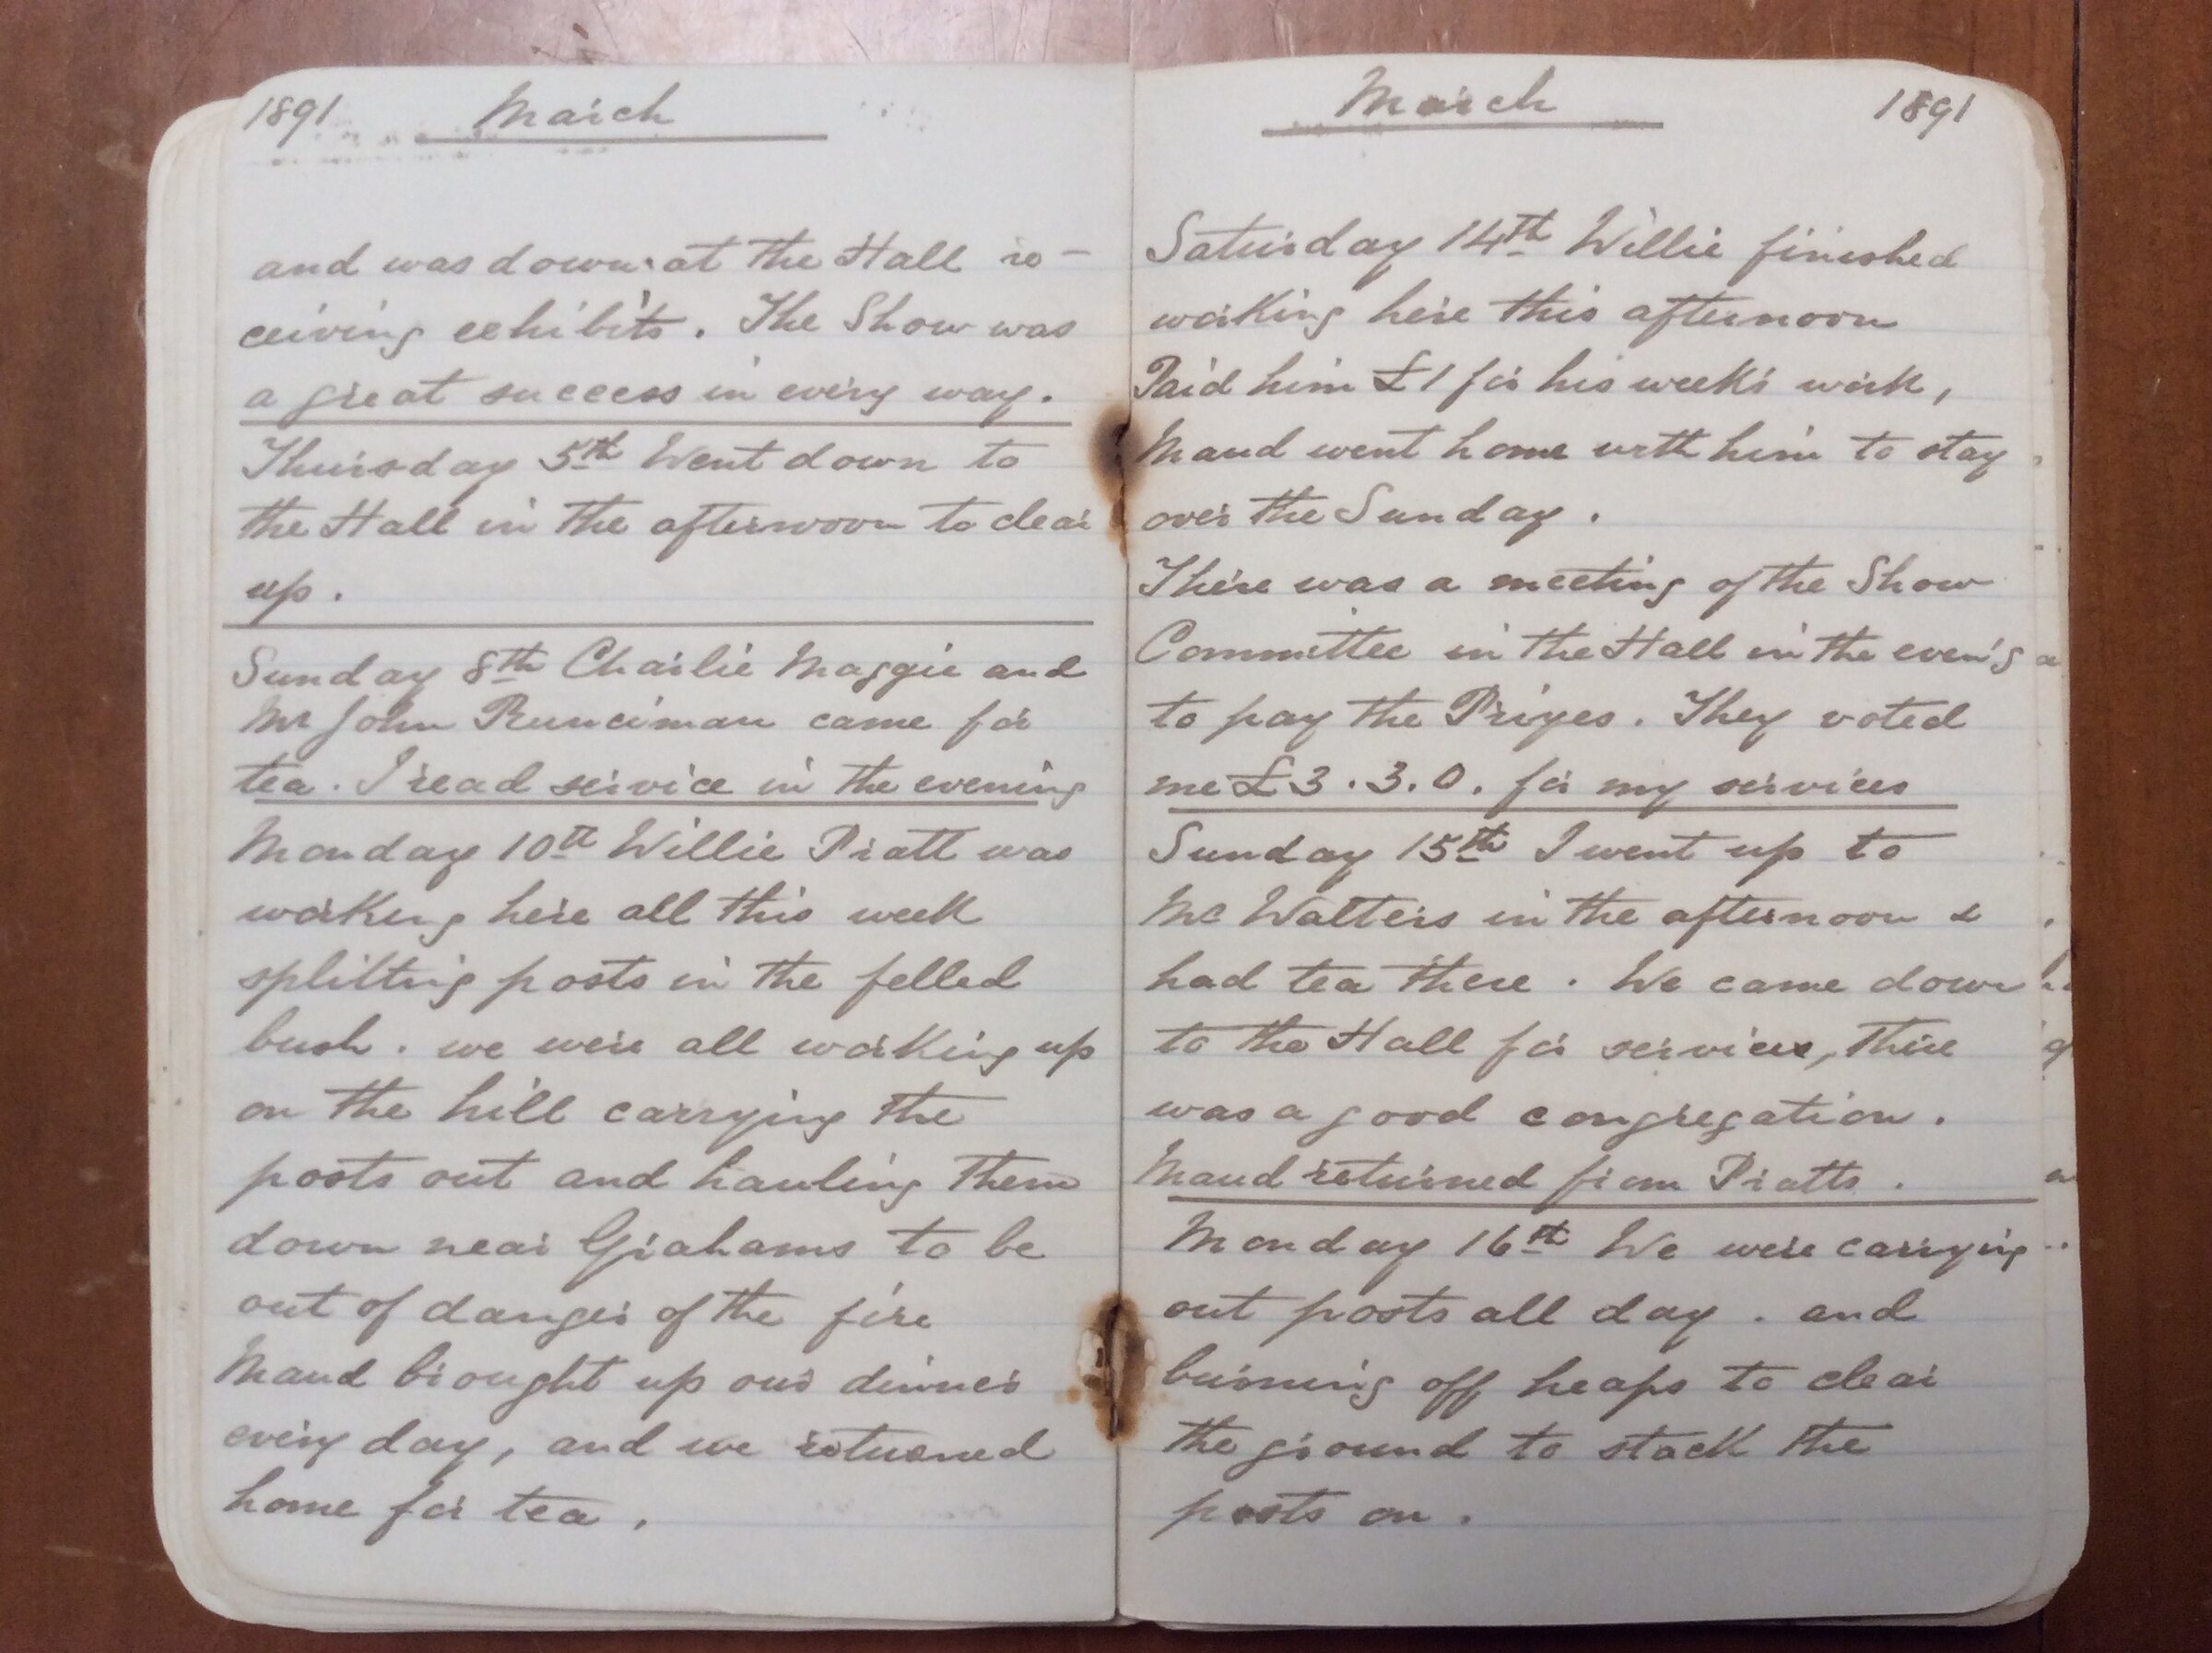 1891 March
and was down at the Hall re-
ceiving exhibits. The Show was
a great success in every way.
Thursday 5th Went down to
the Hall in the afternoon to clear
up.
Sunday 8th Charlie Maggie and
Mr John Runciman came for
tea. I read service in the evening
Monday 10th Willie Pratt was
working here all this week
splitting posts in the felled
bush. we were all working up
on the hill carrying the
posts out and hauling them
down near Grahams to be
out of danger of the fire
Maud brought up our dinner
every day, and we returned
home for tea.
March 1891
Saturday 14th Willie finished
working here this afternoon
Paid him £1 for his weeks work,
Maud went home with him to stay
over the Sunday.
There was a meeting of the Show
Committee in the Hall in the even'g
to pay the Prizes. They voted
me £3.3.0. for my services
Sunday 15th I went up to
Mc Walters in the afternoon &
had tea there. We came down
to the Hall for service, there
was a good congregation.
Maud returned from Pratts.
Monday 16th We were carrying
out posts all day. and
burning off heaps to clear
the ground to stack the
posts on.